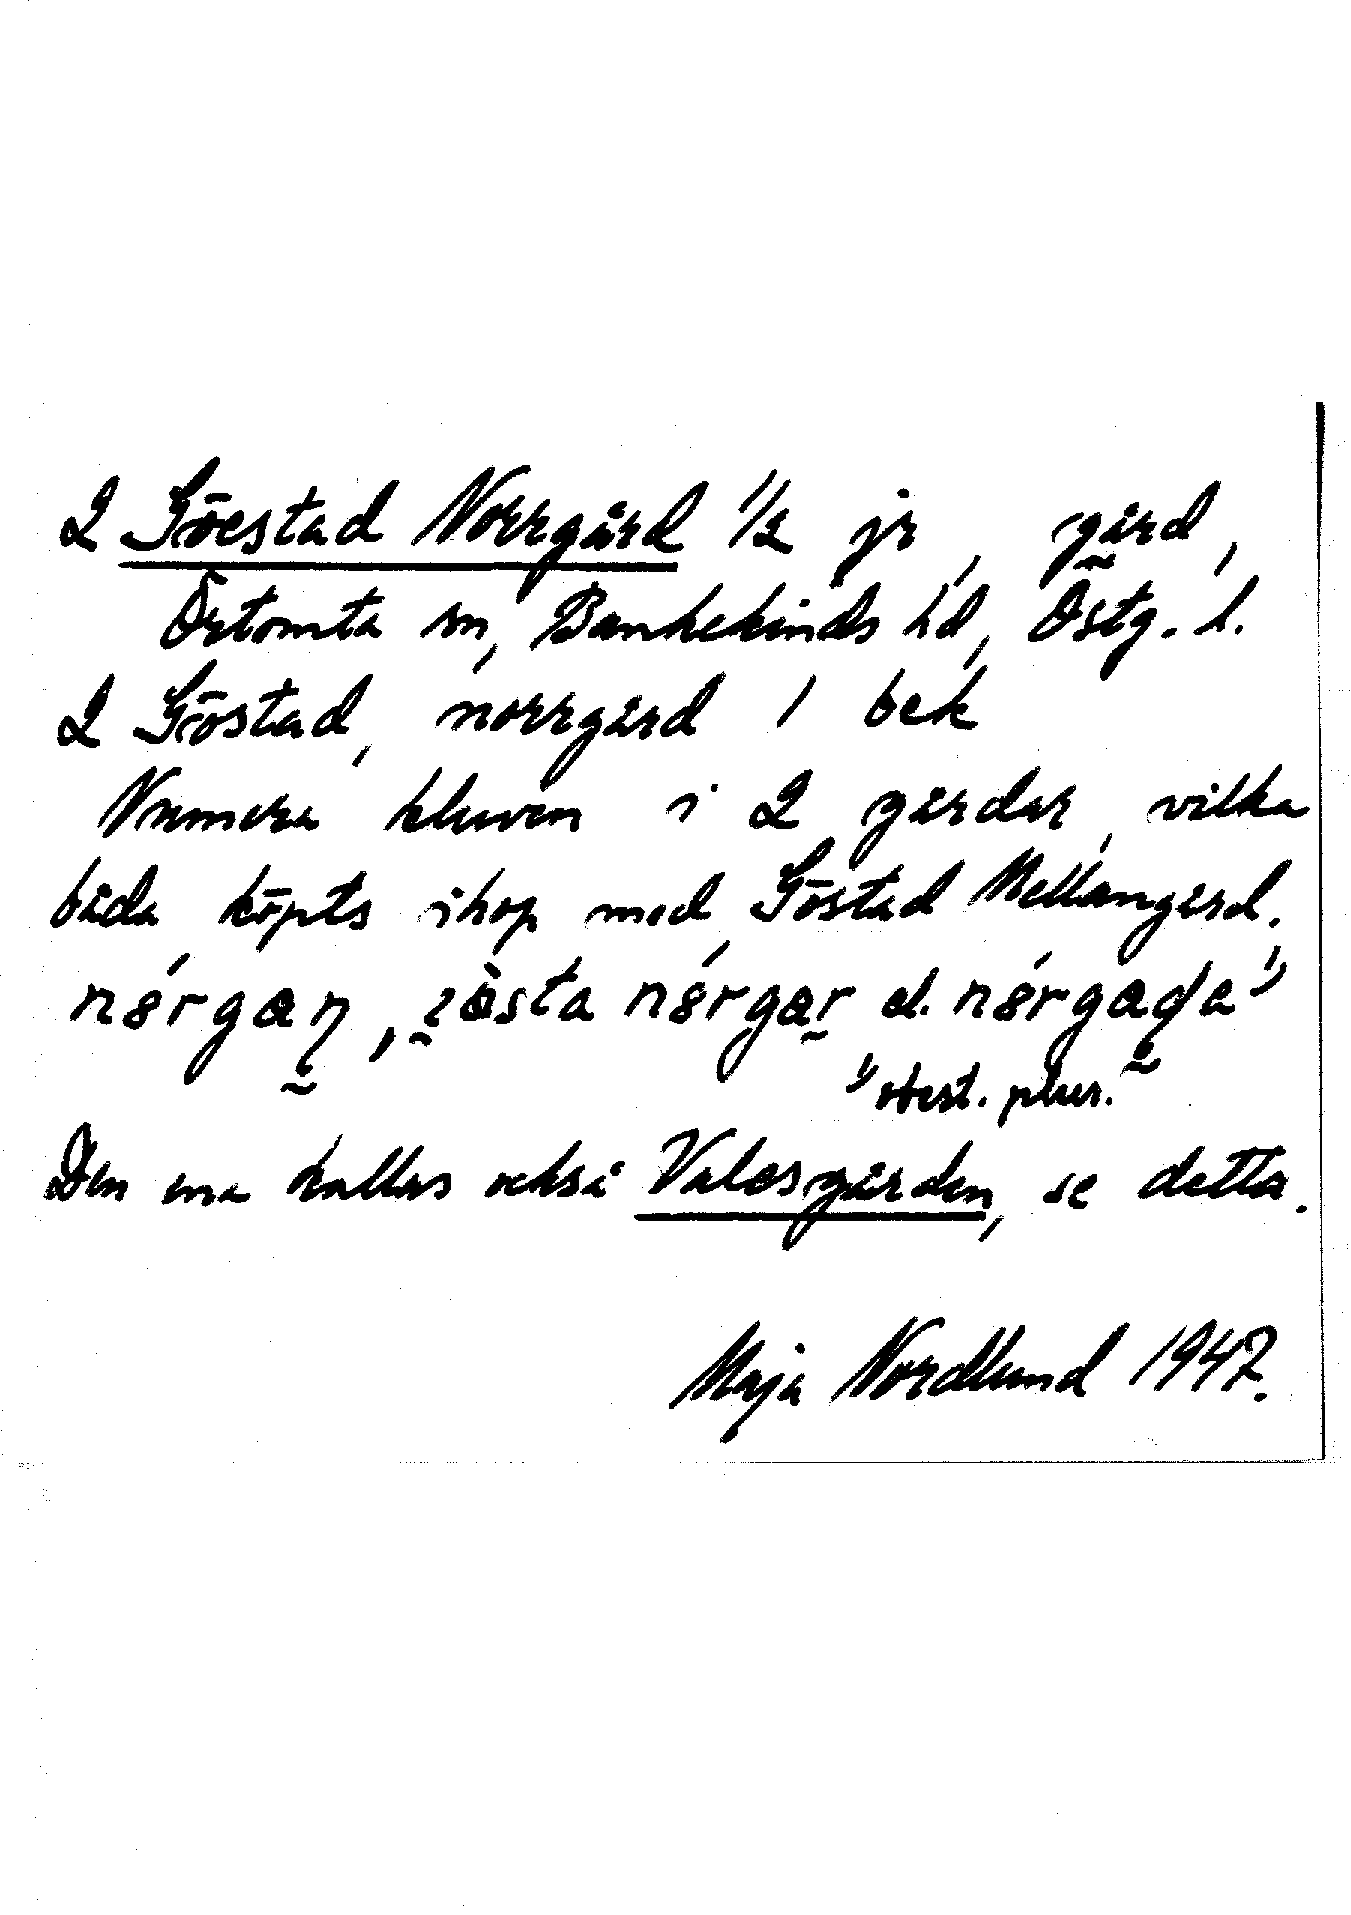 2 Göestad Norrgård 1/2 jr, gård,
Örtomta sn, Bankekinds hd, Östg. l.
2 Göstad, norrgård 1 bek
Numera kluven i 2 gårdar, vilka
båda köpts ihop med Göstad Mellangård.
el.
1) obest. plur.
Den ena kallas också Valesgården, se detta.
Maja Nordlund 1947.